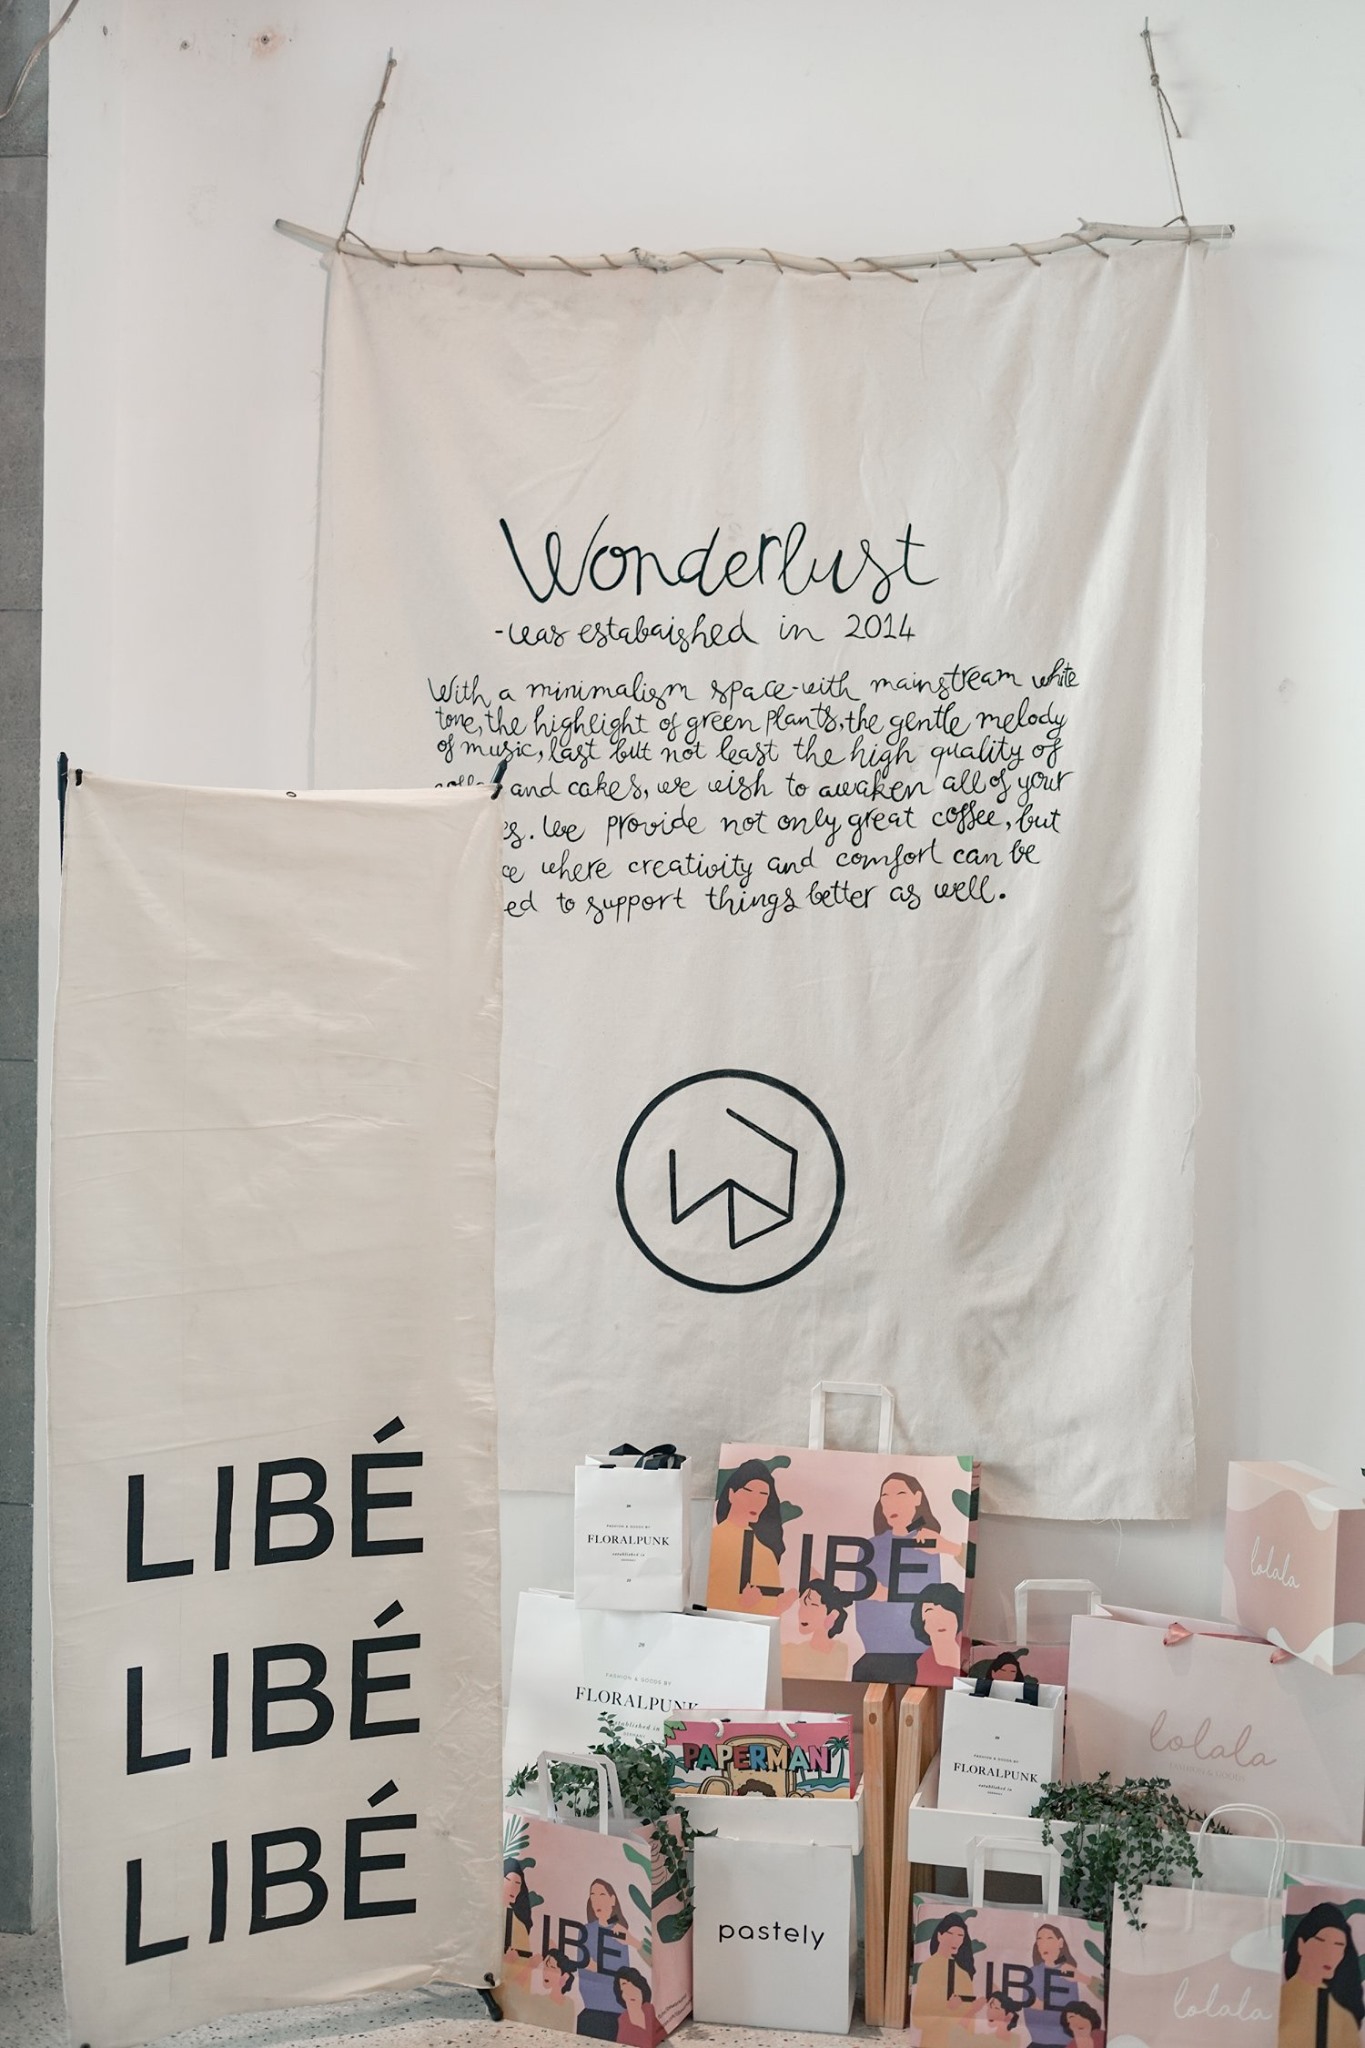 Wonderlust
-was estabaished in 2014
With a minimalism space-with mainstream white
tone, the highlight of green plants, the gentle melody
of music, last but not least the high quality of
and cakes, we wish to awaken all of your
We provide not only great coffee, but
where creativity and comfort can be
to support things better as well.
LIBÉ
LIBÉ
LIBÉ
FASHION & GOODS BY
FLORALPUNK
established in
LIBÉ
lolala
20
FASHION & GOODS BY
FLORALPUNK
established in
PAPERMAN
FASHION & GOODS BY
FLORALPUNK
established in
lolala
FASHION & GOODS
LIBÉ
pastely
LIBÉ
lolala